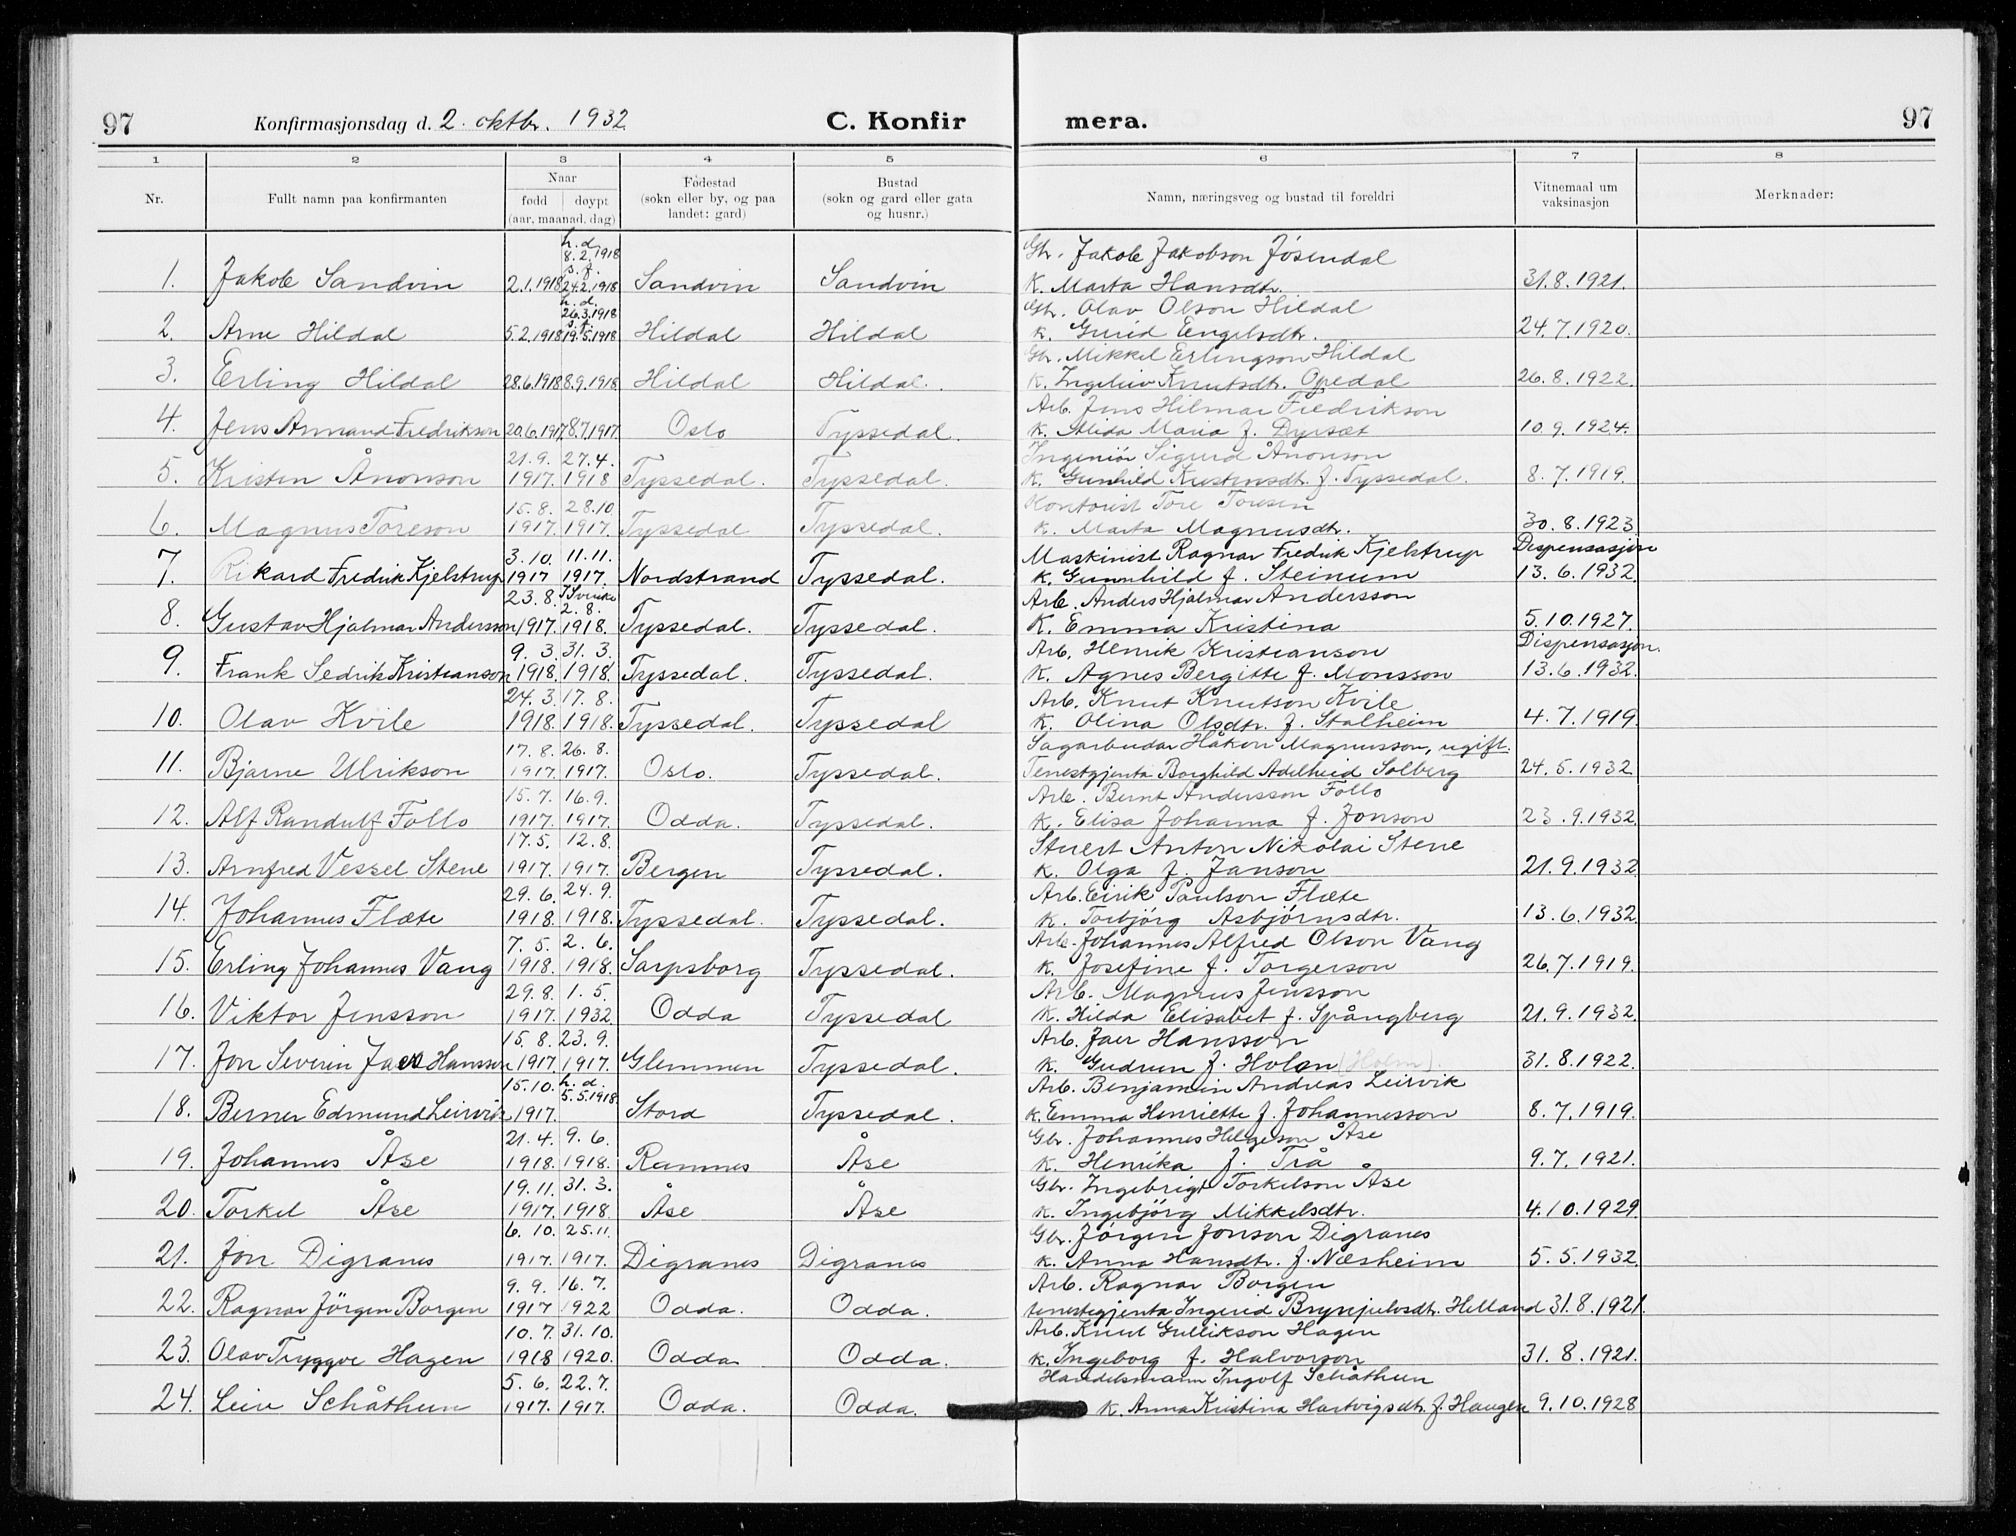 97 Konfirmasjonsdag d. 2. oktbr. 1932 C. Konfir mera. 97
1 2 3 4 5 6 7 8
Nr. Fullt namn paa konfirmanten Naar fødd døypt (aar, maanad, dag) Fødestad (sokn eller by, og paa landet: gard) Bustad (sokn og gard eller gata og husnr.) Namn, næringsveg og bustad til foreldri Vitnemaal um vaksinasjon Merknader:
h. d. 8.2.1918 s. f. Gbr. Jakob Jakobson Jøsendal
1. Jakob Sandvin 2.1.1918 24.2.1918 Sandvin Sandvin K. Marta Hansdtr. 31.8.1921.
h. d. 26.3.1918 s. f. Gbr. Olav Olson Hildal
2. Arne Hildal 5.2.1918 19.5.1918 Hildal Hildal K. Gurid Engelsdtr. 24.7.1920.
Gbr. Mikkel Erlingson Hildal
3. Erling Hildal 28.6.1918 8.9.1918 Hildal Hildal. K. Ingeleiv Knutsdtr. Opedal 26.8.1922.
Arb. Jens Hilmar Fredrikson
4. Jens Armand Fredrikson 20.6.1917 8.7.1917. Oslo Tyssedal. K. Alida Maria f. Dyrsæt 10.9.1924.
21.9. 27.4. Ingeniör Sigurd Ånonson
5. Kristen Ånonson 1917. 1918 Tyssedal. Tyssedal. K. Gunhild Kristensdtr. f. Tyssedal. 8.7.1919.
15.8. 28.10. Kontorist Tore Toresen
6. Magnus Toreson 1917. 1917. Tyssedal Tyssedal. K. Marta Magnusdtr. 30.8.1923
3.10. 11.11. Maskinist Ragnar Fredrik Kjelstrup Dispensasjon
7. Rikard Fredrik Kjelstrup 1917 1917. Nordstrand Tyssedal. K. Gunnhild f. Steinum 13.6.1932.
23.8. I Sverike 2.8. Arb. Anders Hjalmar Andersson
8. Gustav Hjalmar Andersson 1917. 1918. Tyssedal. Tyssedal. K. Emma Kristina 5.10.1927.
9.3. 31.3. Arb. Henrik Kristianson Dispensasjon.
9. Frank Sedrik Kristianson 1918. 1918. Tyssedal. Tyssedal. K. Agnes Bergitte f. Monsson 13.6.1932.
24.3. 17.8. Arb. Knut Knutson Kvile
10. Olav Kvile 1918. 1918. Tyssedal. Tyssedal K. Olina Olsdtr. f. Stalheim 4.7.1919
17.8. 26.8. Sagarbudar Håkon Magnusson, ugift.
11. Bjarne Ulrikson 1917. 1917. Oslo. Tyssedal. Tenestgjenta Borghild Adelheid Solberg 24.5.1932
15.7. 16.9. Arb. Bernt Andersson Follo
12. Alf Randulf Follo 1917. 1917. Odda. Tyssedal. K. Elisa Johanna f. Jonson 23.9.1932
17.5. 12.8. Stuert Anton Nikolai Stene
13. Arnfred Vessel Stene 1917. 1917. Bergen Tyssedal. K. Olga f. Janson 21.9.1932
29.6. 24.9. Arb. Eirik Paulson Flæte
14. Johannes Flæte 1918. 1918. Tyssedal. Tyssedal. K. Torbjörg Asbjörnsdtr. 13.6.1932
7.5. 2.6. Arb. Johannes Alfred Olson Vang
15. Erling Johannes Vang 1918. 1918. Sarpsborg Tyssedal. K. Josefine f. Torgerson 26.7.1919.
29.8. 1.5. Arb. Magnus Jensson
16. Viktor Jensson 1917. 1932. Odda Tyssedal K. Hilda Elisabet f. Spångberg 21.9.1932.
15.8. 23.9. Arb. Jaer Hansson
17. Jon Severin Jaer Hansson 1917. 1917. Glemmen Tyssedal. K. Gudrun f. Holen (Holm). 31.8.1922.
15.10. h. d. 5.5.1918. Arb. Benjamin Andreas Leirvik
18. Berner Edmund Leirvik 1917. Stord Tyssedal. K. Emma Henriette f. Johannesson 8.7.1919.
21.4. 9.6. Gbr. Johannes Helgeson Åse
19. Johannes Åse 1918. 1918. Rannes Åse K. Henrika f. Trå 9.7.1921.
19.11. 31.3. Gbr. Ingebrigt Torkelson Åse
20. Torkel Åse 1917. 1918. Åse Åse K. Ingebjörg Mikkelsdtr. 4.10.1929.
6.10. 25.11. Gbr. Jörgen Jonson Digranes
21. Jon Digranes 1917. 1917. Digranes Digranes K. Anna Hansdtr. f. Næsheim 5.5.1932.
9.9. 16.7. Arb. Ragnar Borgen
22. Ragnar Jörgen Borgen 1917 1922 Odda. Odda. tenestegjenta Ingerid Brynjulvsdtr. Helland 31.8.1921.
10.7. 31.10. Arb. Knut Gullikson Hagen
23. Olav Tryggve Hagen 1918 1920. Odda Odda. K. Ingeborg f. Halvorson 31.8.1921.
5.6. 22.7. Handelsmann Ingolf Schåthun
24. Leiv Schåthun 1917. 1917. Odda. Odda. K. Anna Kristina Hartvigsdtr. f. Haugen 9.10.1928